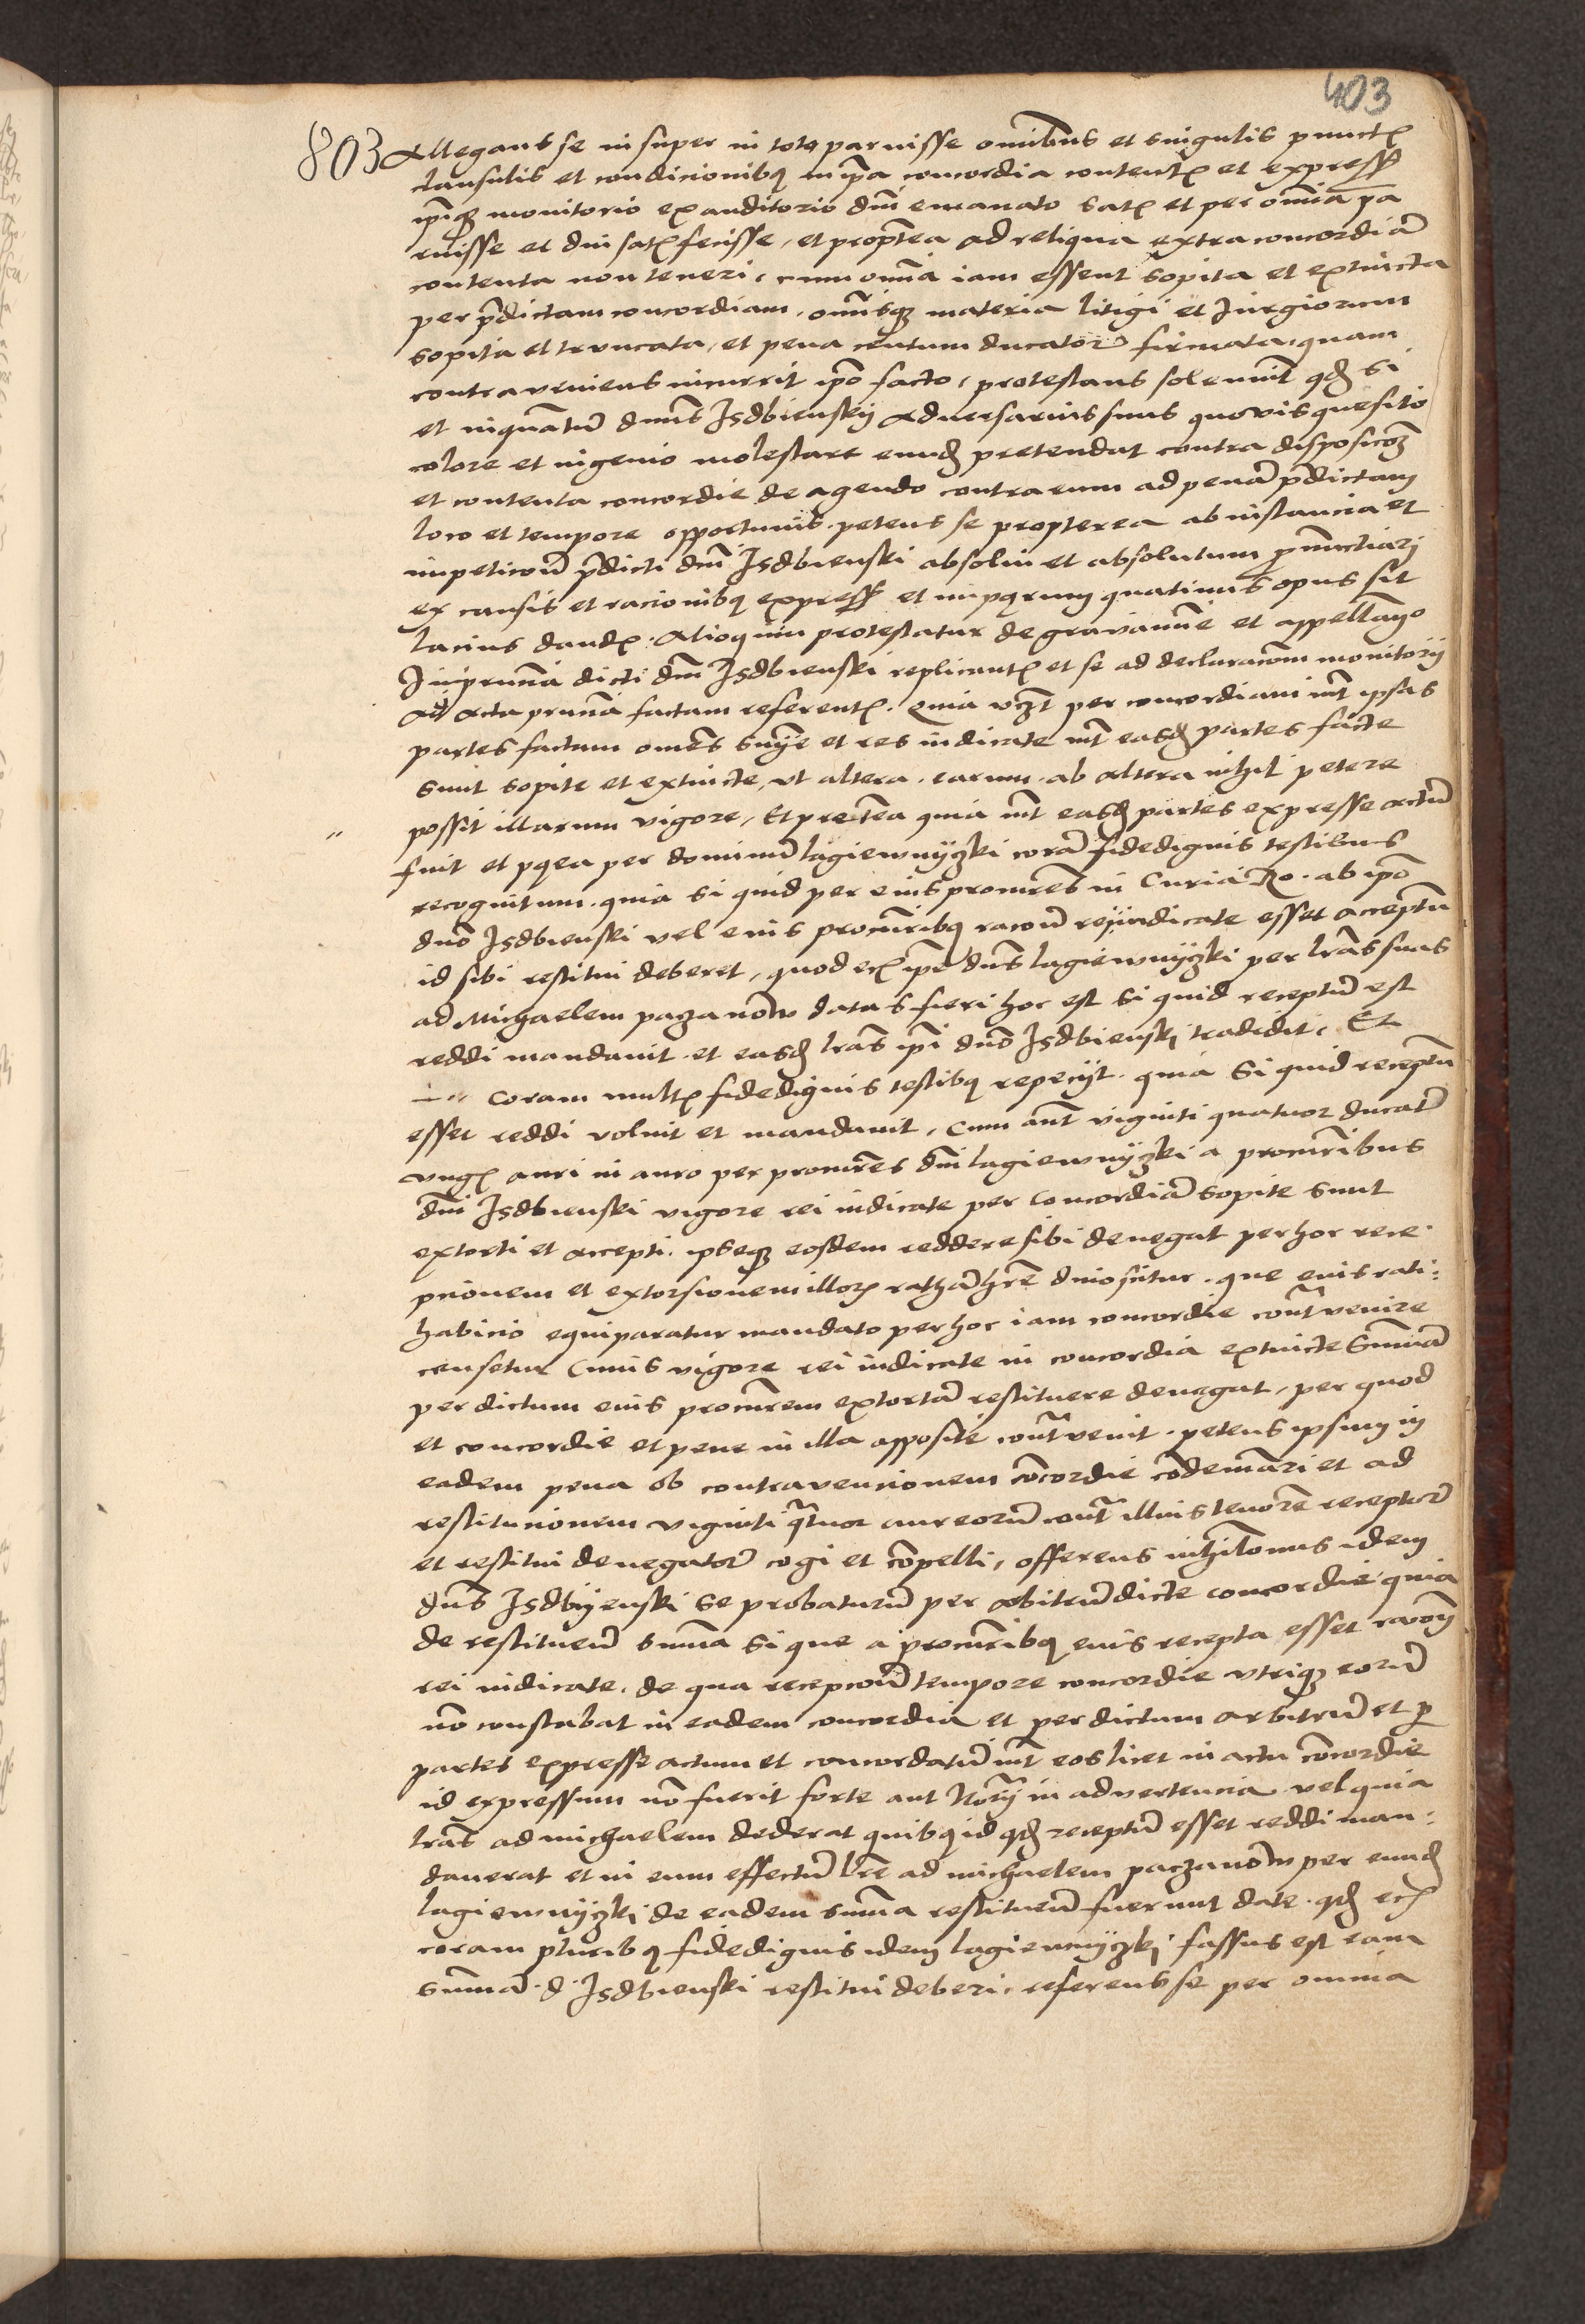 403
803 Allegans se insuper in toto paruisse omnibus et singulis punct
clausulis et condicionibus in ipa concordia content et express
ipiq monitorio ex auditorio dni emanato satis et per omnia pa
ruisse et dni satisfecisse, et propterea ad reliqua extra concordiã
contenta non teneri, cum omnia iam essent sopita et extincta
per pdictam concordiam, omisq materia litigi et Jurgiorum
sopita et truncata, et pena centum ducator firmata, quam
contraveniens incurrit ipo facto, protestans solennit qd si
et inquãtum dnus Jsdbienskÿ aduersarius suus quovis quesito
colore et ingenio molestare eund pretendat contra disposicoem
et contenta concordie de agendo contra eum ad penã pdictam
loco et tempore opportunis. petens se propterea ab instancia et
impeticoe pdicti dni Jsdbienski absolui et absolutum pnuncciari
ex causis et racionibus express et inposterum quatinus opus sit
lacius dand. Alioquin protestatur de gravamine et appellando
In pncia dicti dni Jsdbienski replicant et se ad declaracoem monitorij
ad acta pncia factam referent. quia vzt per concordiam int ipsas
partes factam omes snie et res iudicate int easd partes facte
sunt sopite et extincte, vt altera earum ab altera nihil petere
possit illarum vigore, Et preterea quia int easd partes expresse actu
fuit et postea per dominũ lagiewnÿzki corã fidedignis testibus
recognitum. quia si quid per eius procures in Curia Ro. ab ipo
dno Jsdbienski vel eius procuribus racoe rei iudicate esset acceptu
id sibi restitui deberet, quod ec ipe dns lagiewnÿzki per lras suas
ad Michaelem paczanow datas fieri hoc est si quid receptũ est
reddi mandauit. et easd lras ipi dno Jsdbienski tradidit, Et
coram mult fidedignis testibus repecijt. quia si quid receptu
esset reddi voluit et mandauit, Cum aut viginti quatuor ducat
vng auri in auro per procures dni lagiewnÿzki a procuribus
dni Jsdbienski vigore rei iudicate per Concordiã sopite sunt
extorti et accepti. ipseq eosdem reddere sibi denegat per hoc rece
pcionem et extorsionem illor rathã hre dinoscitur. que eius rati=
habicio equiparatur mandato per hoc iam concordie contrvenire
censetur Cuius vigore rei iudicate in concordia extincte summã
per dictum eius procurem extortã restituere denegat, per quod
et concordie et pene in illa apposite contrvenit. petens ipsum in
eadem pena ob contravencionem concordie condemnari et ad
restitucionem viginti qtuor aureorũ cont illius tenorẽ receptor
et restitui denegator cogi et compelli, offerens nihilominus idem
dns Jsdbÿenski se probaturũ per arbitrũ dicte concordie quia
de restituen summa si que a procuribus eius recepta esset racoem
rei iudicate. de qua recepcoe tempore concordie vtriq eorũ
no constabat in eadem concordia et per dictum arbitrũ et p
partes expresse actum et concordatũ int eos licet in actu concordie
id expressum no fuerit forte aut Notarij inadvertencia vel quia
lras ad michaelem dederat quibus id qd receptũ esset reddi man=
dauerat et in eum effectũ lre ad michaelem paczanow per eund
lagiewnÿzki de eadem summa restituen fuerunt date. qd ec
coram pluribus fidedignis idem lagiewnÿzki fassus est eam
summã d Jsdbienski restitui deberi, referens se per omnia